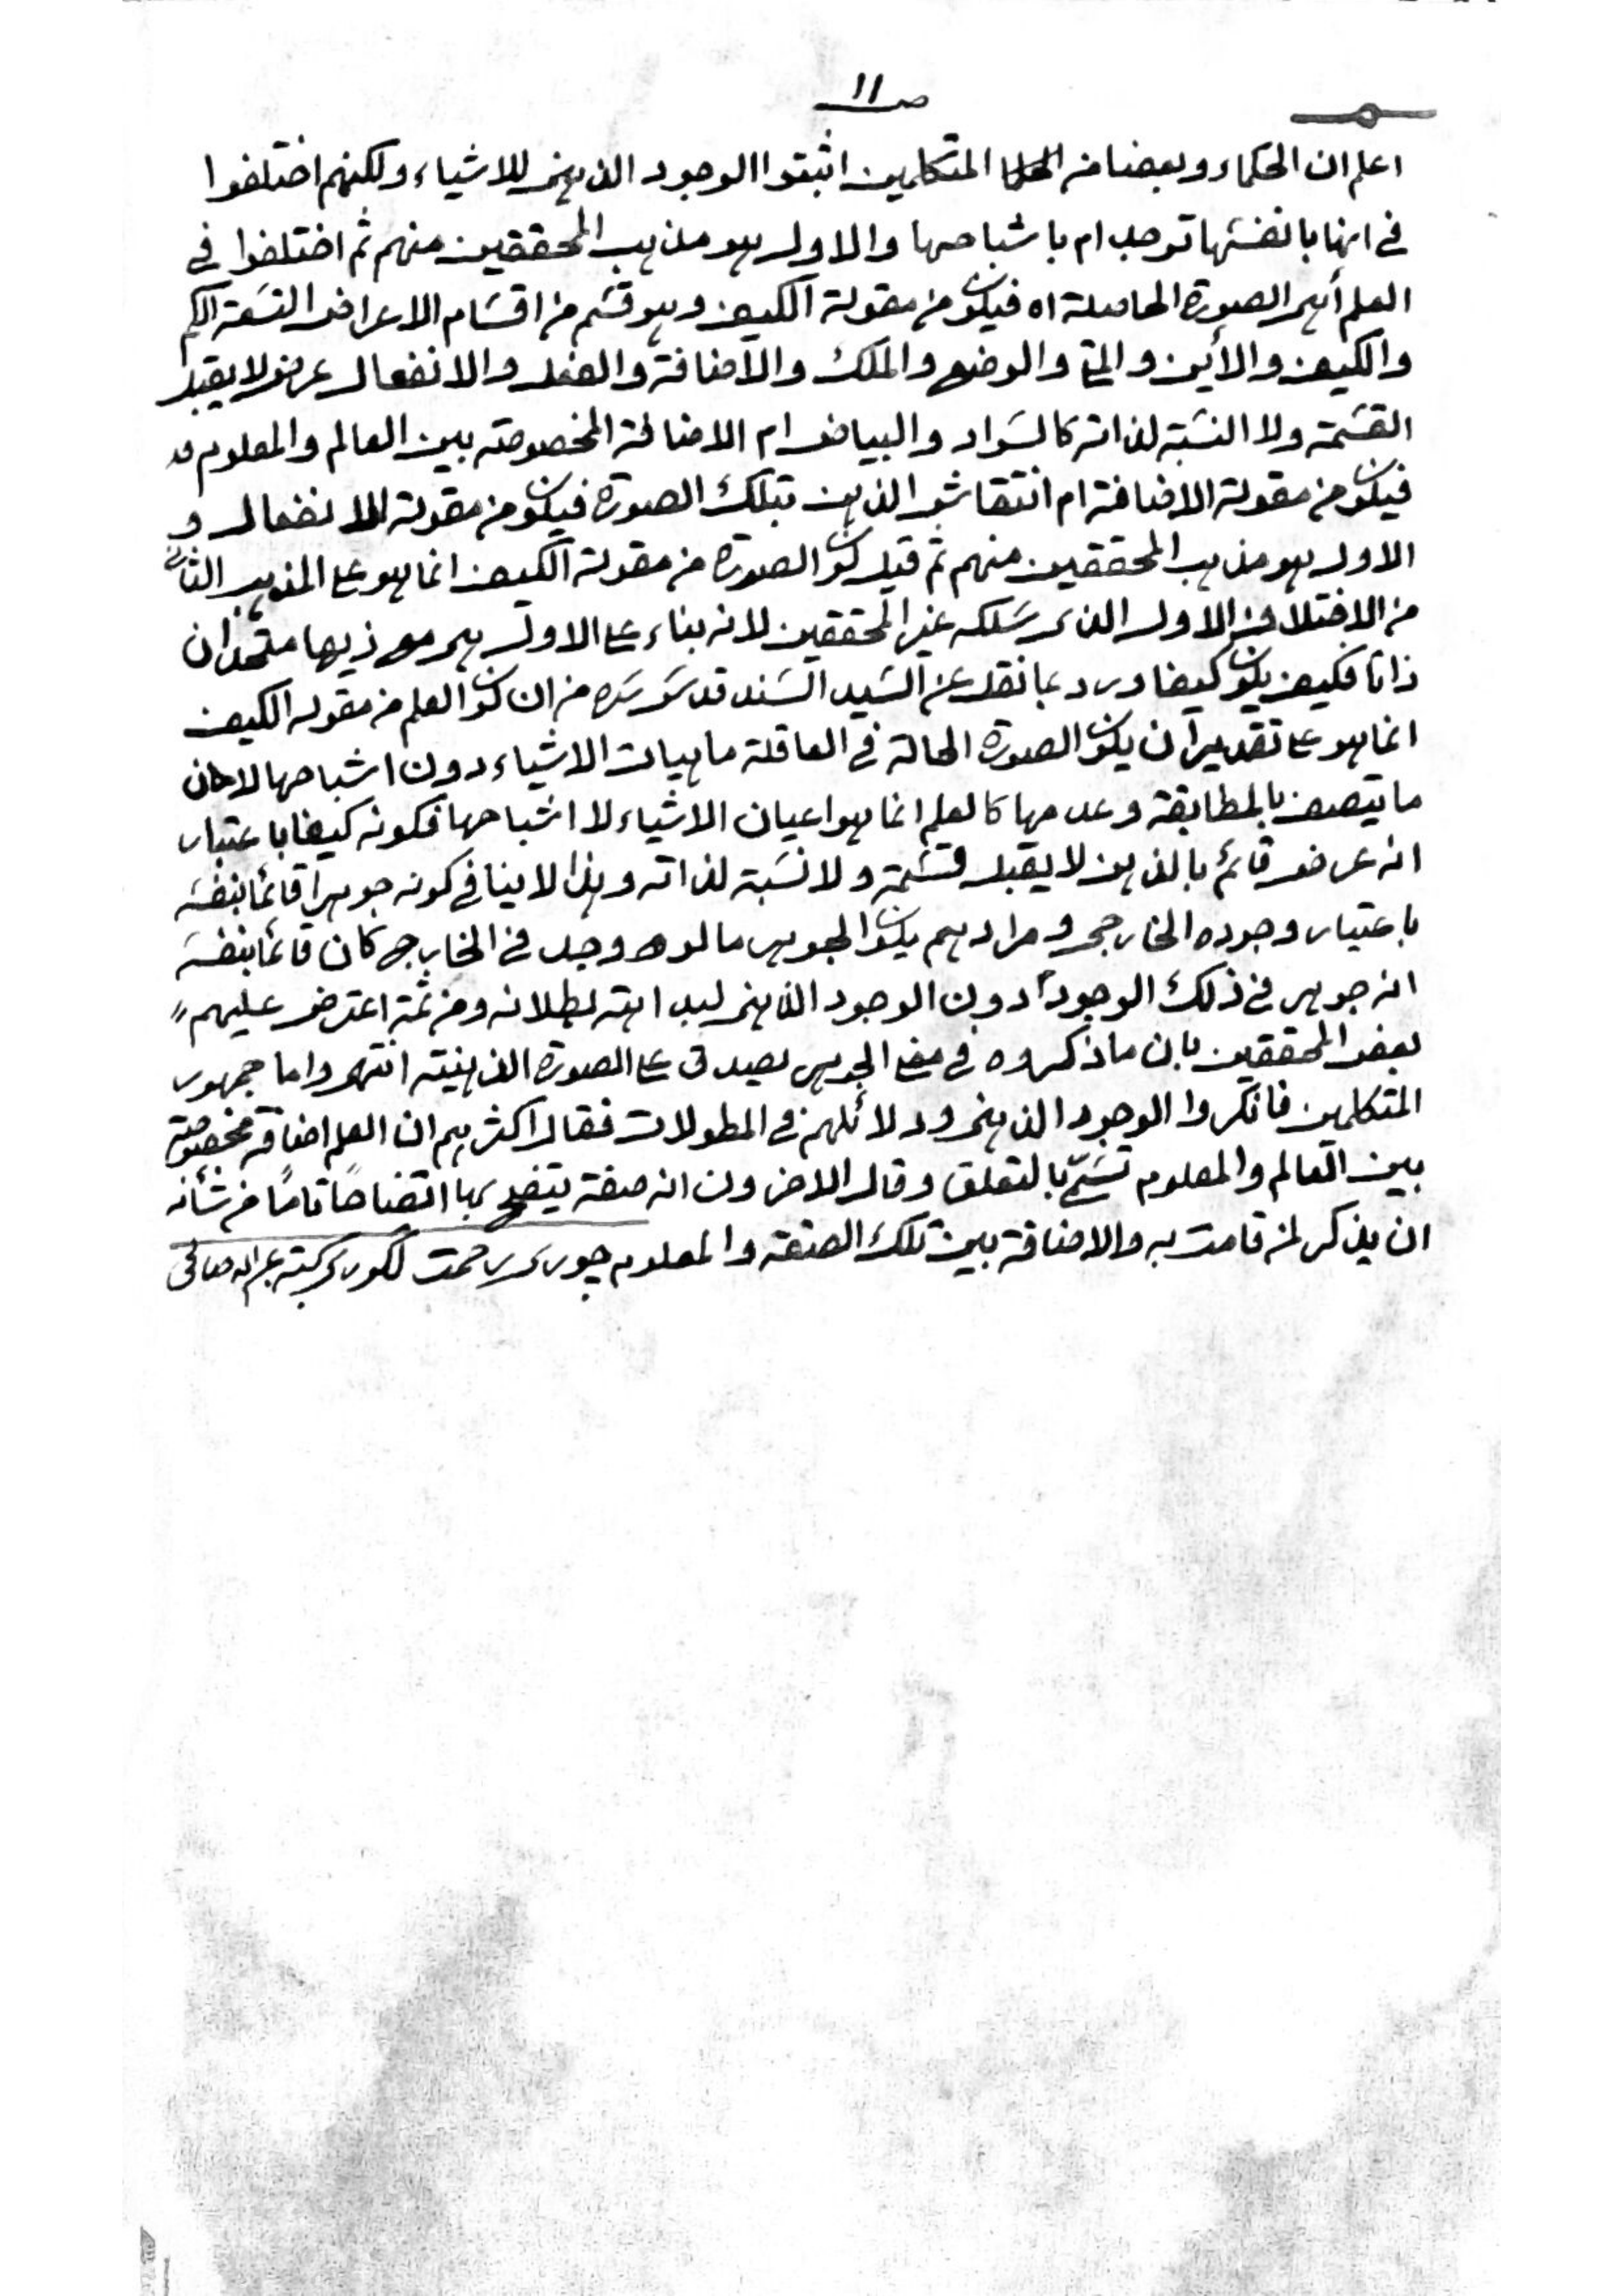 صـ ١١
اعلم ان الحكماء وبعضا من المتكلمين اثبتوا الوجود الذهني للاشياء ولكنهم اختلفوا
في انها بانفسها توجد ام باشباحها والاول هو مذهب المحققين منهم ثم اختلفوا في
العلم أهي الصورة الحاصلة اه فيكون من مقولة الكيف وهو قسم من اقسام الاعراض التسعة الكم
والكيف والأين والمتى والوضع والملك والاضافة والفعل والانفعال عرض لا يقبل
القسمة ولا النسبة لذاته كالسواد والبياض ام الاضافة المخصوصة بين العالم والمعلوم
فيكون من مقولة الاضافة ام انتقاش الذهن بتلك الصورة فيكون من مقولة الانفعال و
الاول هو مذهب المحققين منهم ثم قيل كون الصورة من مقولة الكيف انما هو على المذهب الثاني
من الاختلاف الاول الذي سلكه غير المحققين لانه بناء على الاول هي مع ذيها متحدان
ذاتا فكيف يكون كيفا ورد بما نقل عن السيد السند قدس سره من ان كون العلم من مقولة الكيف
انما هو على تقدير أن يكون الصورة الحالة في العاقلة ماهيات الاشياء دون اشباحها لان
ما يتصف بالمطابقة وعدمها كالعلم انما هو اعيان الاشياء لا اشباحها فكونه كيفا باعتبار
انه عرض قائم بالذهن لا يقبل قسمة ولا نسبة لذاته وهذا لا ينافي كونه جوهرا قائما بنفسه
باعتبار وجوده الخارجي ومرادهم بكون الجوهر ما لو وجد في الخارج كان قائما بنفسه
انه جوهر في ذلك الوجود دون الوجود الذهني لبداهة بطلانه ومن ثمة اعترض عليهم
بعض المحققين بان ما ذكروه في معنى الجوهر يصدق على الصورة الذهنية انتهى واما جمهور
المتكلمين فانكروا الوجود الذهني ودلائلهم في المطولات فقال اكثرهم ان العلم اضافة مخصوصة
بين العالم والمعلوم تسمى بالتعلق وقال الاخرون انه صفة يتضح بها اتضاحا تاما من شأنه
ان يذكر لمن قامت به والاضافة بين تلك الصفة والمعلوم جوري رحمت كتبه